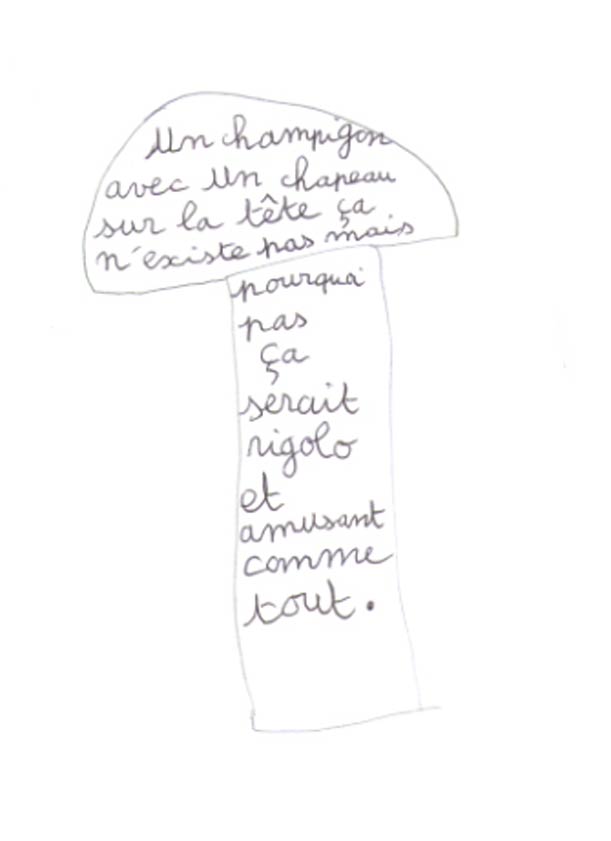 Un champigon
avec un chapeau
sur la tête ça
n'existe pas mais
pourquoi
pas
ça
serait
rigolo
et
amusant
comme
tout.